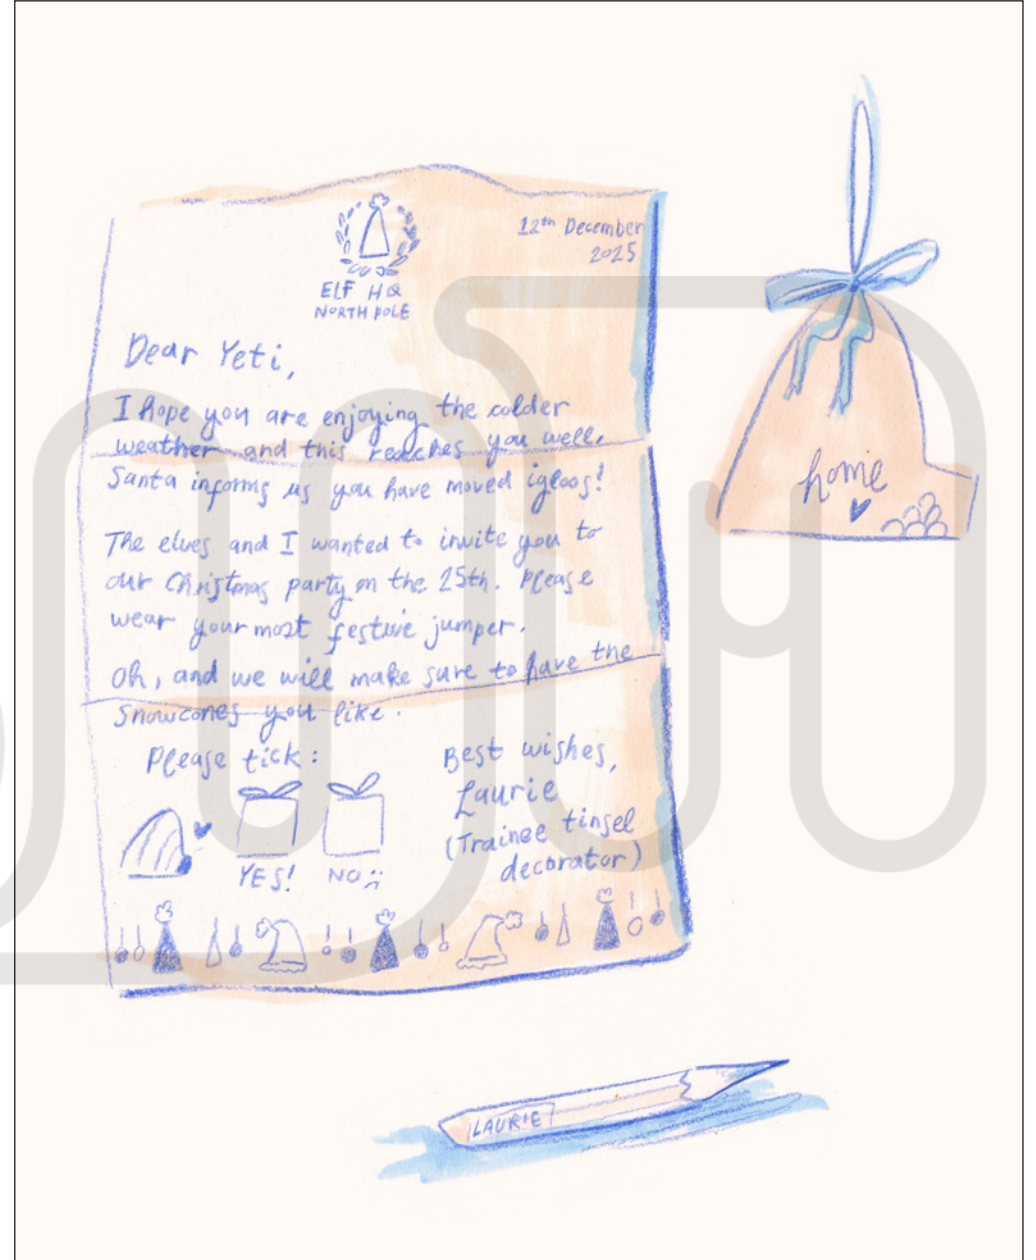 12th December
2025
ELF HQ
NORTH POLE
Dear Yeti,
I hope you are enjoying the colder
weather and this reaches you well.
Santa informs us you have moved igloos!
The elves and I wanted to invite you to
our Christmas party on the 25th. Please
wear your most festive jumper.
Oh, and we will make sure to have the
snowcones you like.
Please tick:
YES!
NO :(
Best wishes,
Laurie
(Trainee tinsel
decorator)
home
LAURIE